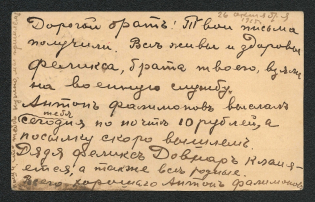 Дорогой братъ! Твои письма
получили. Всѣ живы и здоровы
Феликса, брата твоего, взяли
на военную службу.
Антонъ
тебѣ
сегодня по почтѣ 10 рублей, а
посылку скоро вышлемъ.
Дядя Феликсъ Довнар кланя-
ется, а также всѣ родные.
Всего хорошаго Антонъ